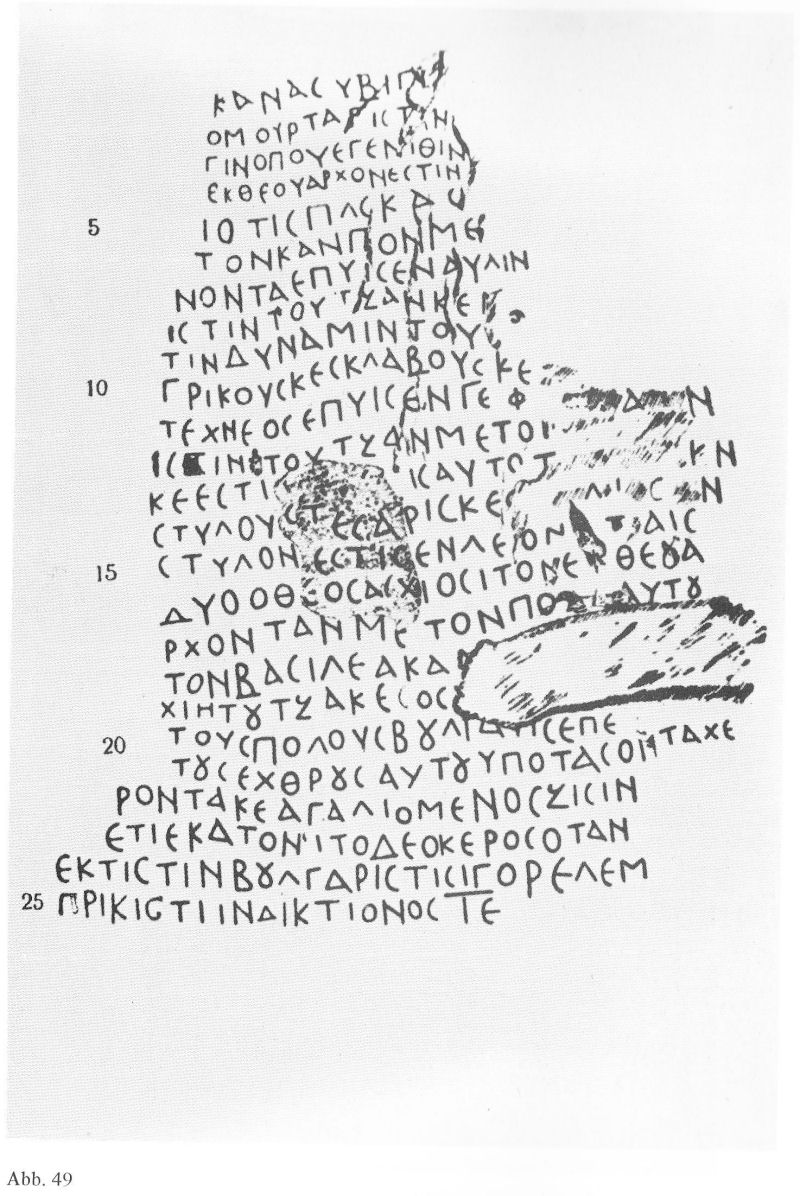 ΚΑΝΑϹΥΒΙΓΙ
ΟΜΟΥΡΤΑΓΙϹΤΙΝ
ΓΙΝΟΠΟΥΕΓΕΝΙΘΙΝ
ΕΚΘΕΟΥΑΡΧΟΝΕϹΤΙΝ
5 ΙΟΤΙϹΠΛϹΚΑΥ
ΤΟΝΚΑΝΠΟΝΜΕ
ΝΟΝΤΑΕΠΥΙϹΕΝΑΥΛΙΝ
ΙϹΤΙΝΤΟΥΤΖΑΝΚΕ
ΤΙΝΔΥΝΑΜΙΝΤΟΥ
10 ΓΡΙΚΟΥϹΚΕϹΚΛΑΒΟΥϹΚΕ
ΤΕΧΝΕΟϹΕΠΥΙϹΕΝΓΕΦ
ΙϹΤΙΝΤΟΥΤΖΑΝΜΕΤΟΙ
ΚΕΕϹΤΙ ΙϹΑΥΤΟ
ϹΤΥΛΟΥϹΤΕϹΑΡΙϹΚΕ
15 ϹΤΥΛΟΝΕϹΤΙϹΕΝΛΕΟΝ
ΔΥΟΟΘΕΟϹΑΞΙΟϹΙΤΟΝΕΚΘΕȢΑ
ΡΧΟΝΤΑΝΜΕΤΟΝΠΟΔΑΑΥΤȢ
ΤΟΝΒΑϹΙΛΕΑΚΑ
ΧΙΗΤȢΤΖΑΚΕϹΟϹ
20 ΤΟΥϹΠΟΛΟΥϹΒȢΛΓΑΡΙϹΕΠΕ
ΤȢϹΕΧΘΡȢϹΑΥΤȢΥΠΟΤΑϹΟΝΤΑΧΕ
ΡΟΝΤΑΚΕΑΓΑΛΙΟΜΕΝΟϹΖΙϹΙΝ
ΕΤΙΕΚΑΤΟΝΙΤΟΔΕΟΚΕΡΟϹΟΤΑΝ
ΕΚΤΙϹΤΙΝΒȢΛΓΑΡΙϹΤΙϹΙΓΟΡΕΛΕΜ
25 ΠΡΙΚΙϹΤΙΙΝΔΙΚΤΙΟΝΟϹΙΕ
Abb. 49